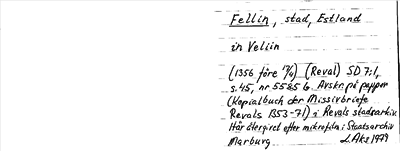 Fellin, stad, Estland
in Veliin
(1356 före 17/4) (Reval) SD 7:1,
s.45, nr 5585 b. Avskr. på papper
(Kopialbuch der Missivbriefe
Revals 1353-71) i Revals stadsarkiv.
Här återgivet efter mikrofilm i Staatsarchiv
Marburg L.Aks 1979